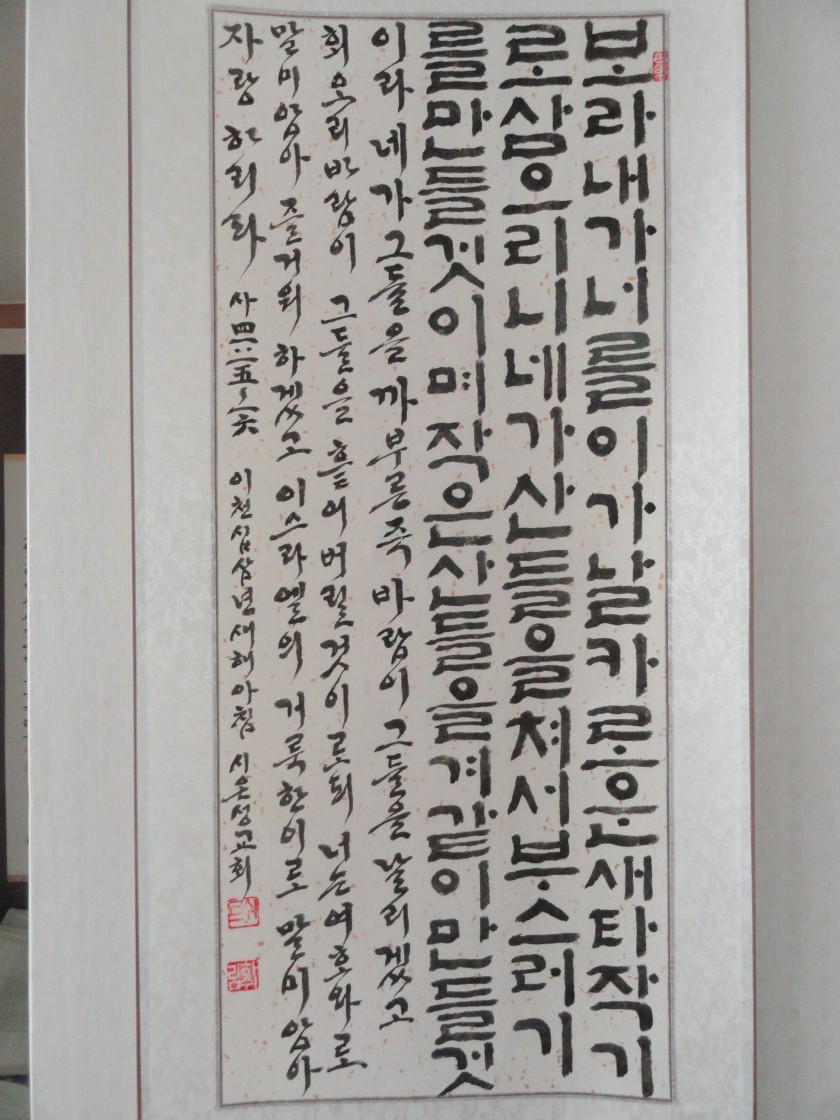 보라내가너를이가날카로운새타작기
로삼으리니네가산들을쳐서부스러기
를만들것이며작은산들을겨같이만들것
이라 네가 그들을 까부른즉 바람이 그들을 날리겠고
회오리바람이 그들을 흩어버릴것이로되 너는여호와로
말미암아 즐거워 하겠고 이스라엘의 거룩한이로 말미암아
자랑하리라 사四一:一五~一六 이천십삼년새해아침 시온성교회